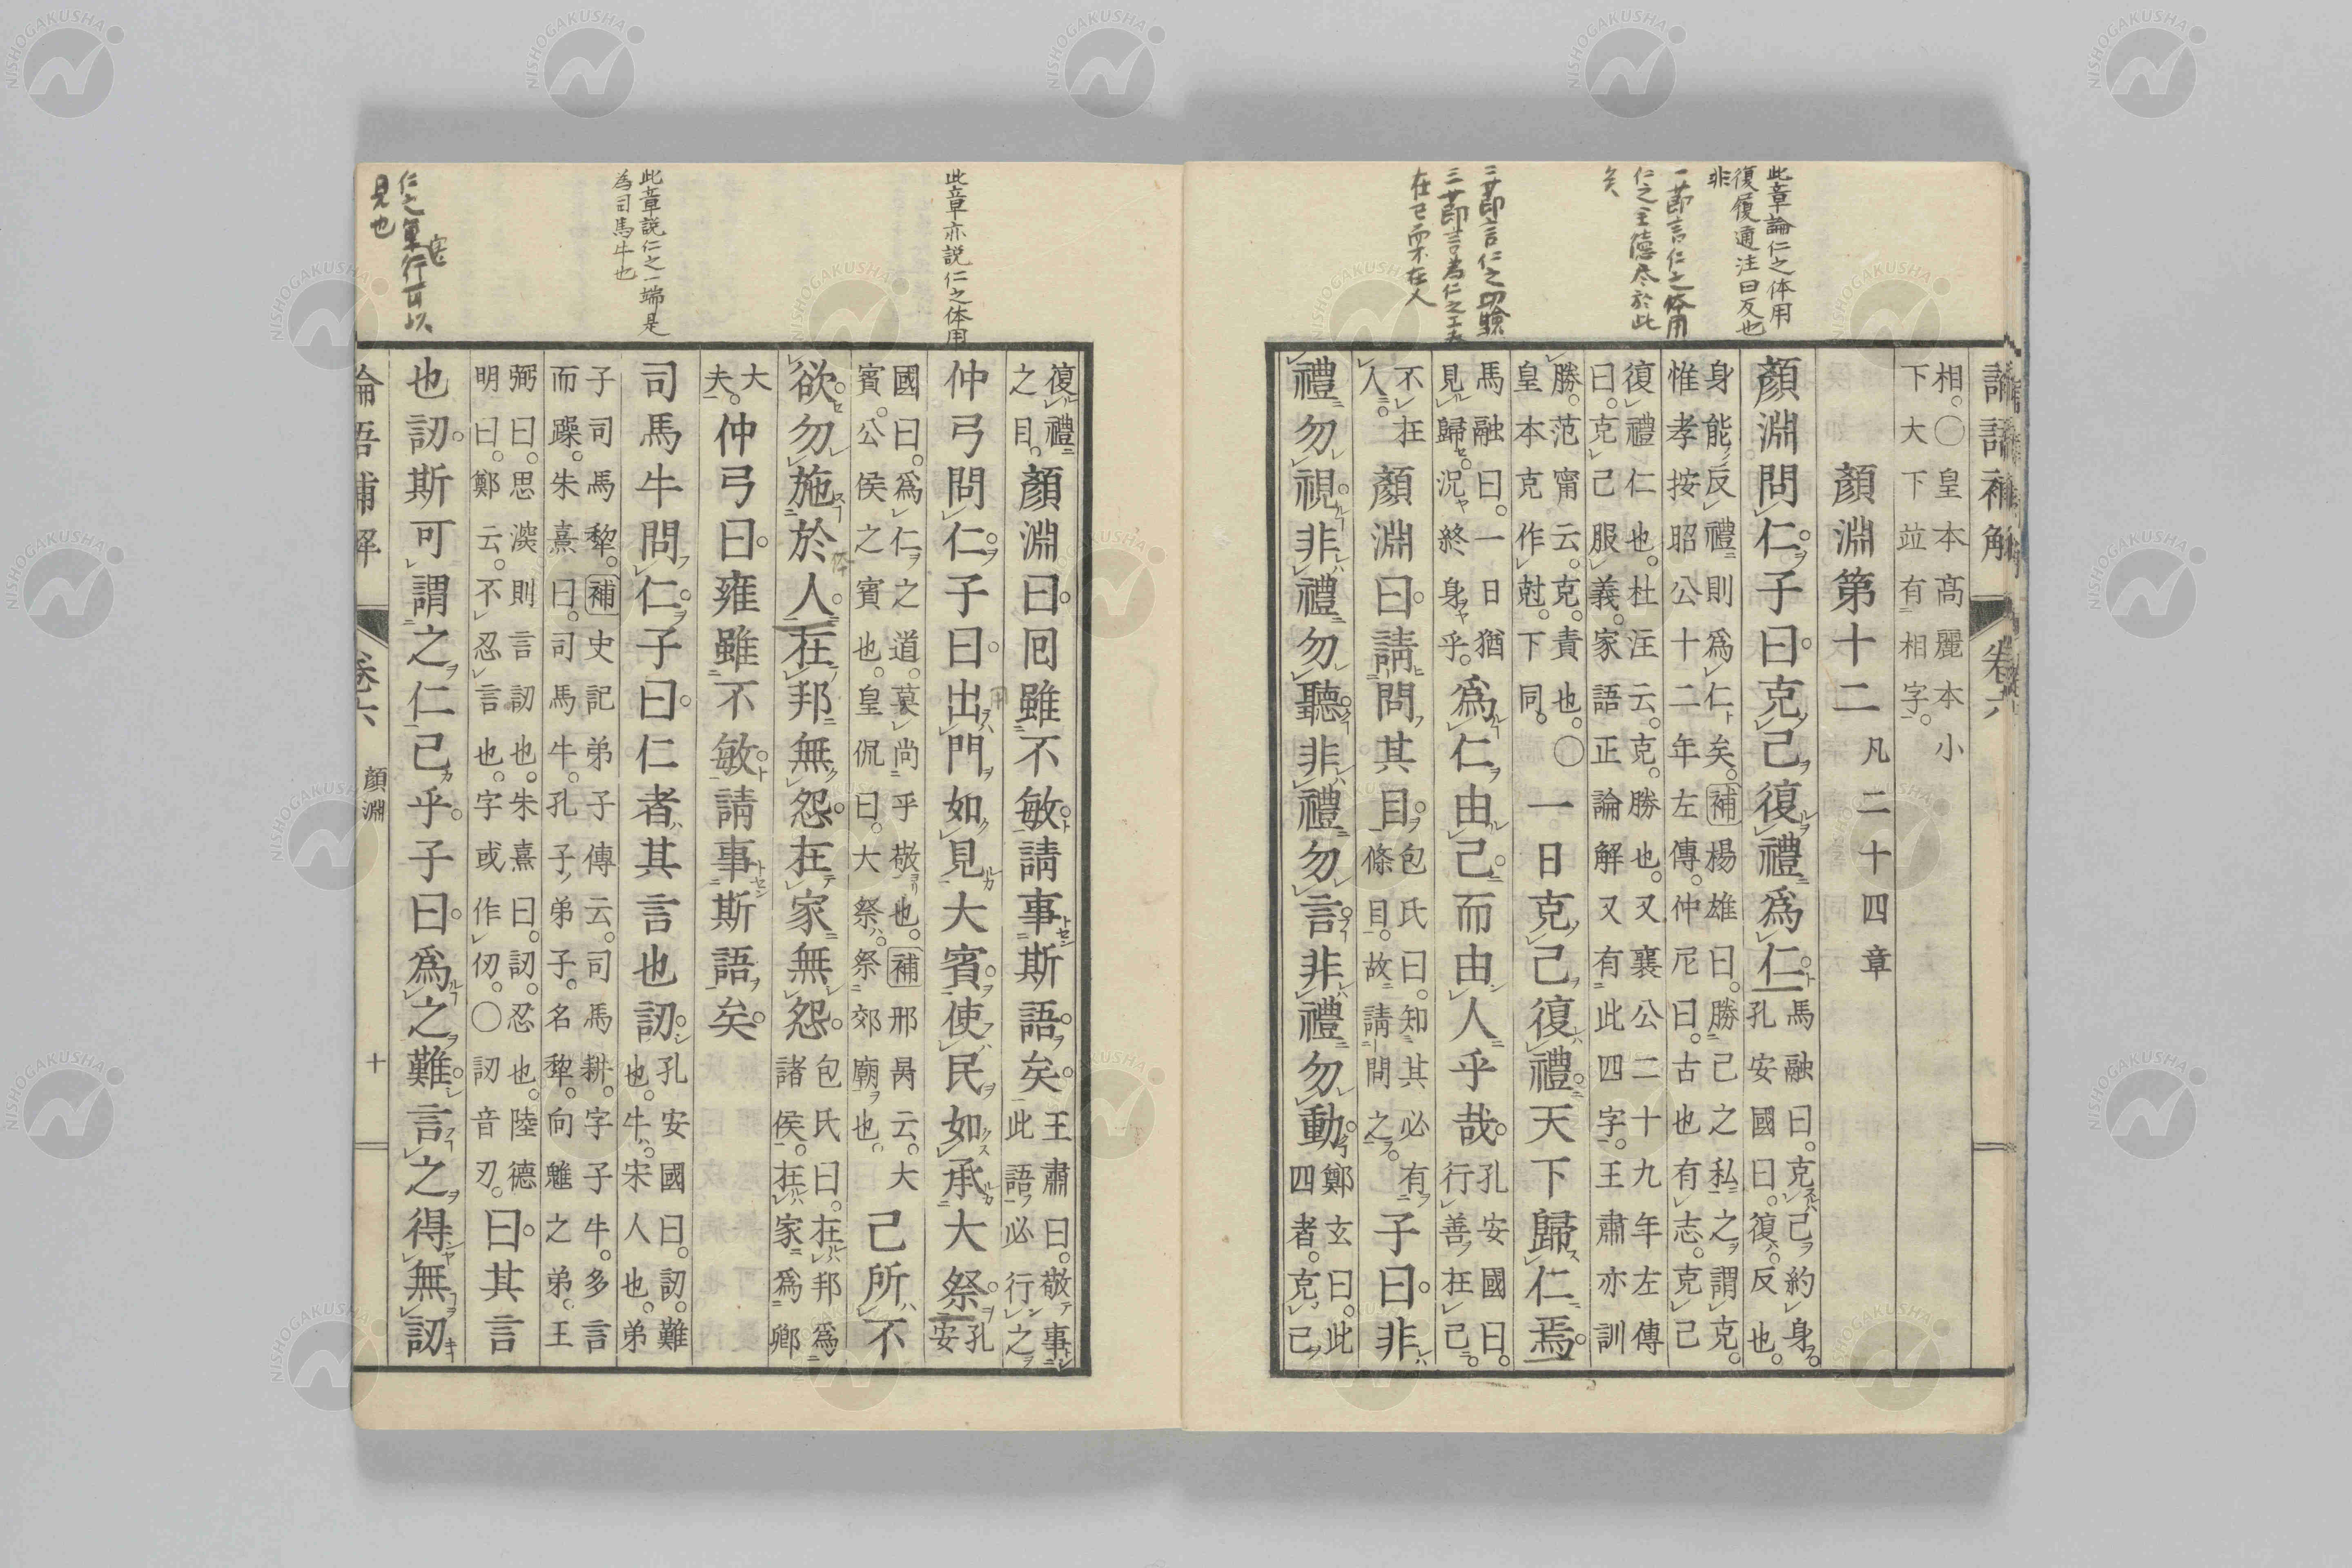 此章論仁之体用
復履通注曰反也
非
一節言仁之体用
仁之主德尽於此
矣、
二節言仁之切驗
三節言為仁之工夫
在己而不在人
論語補解 卷六
相。〇皇本高麗本小
下大下竝有相字。
顏淵第十二 凡二十四章
顏淵問仁。子曰。克己復禮爲仁 馬融曰。克己約身。
孔安國曰。復。反也。
身能反禮則爲仁矣。補楊雄曰。勝己之私之謂克。
惟孝按昭公十二年左傳。仲尼曰。古也有志。克己
復禮仁也。杜注云。克。勝也。又襄公二十九年左傳
曰。克己服義。家語正論解又有此四字。王肅亦訓
勝。范甯云。克。責也。〇
皇本克作尅。下同。
一日克己復禮天下歸仁焉。
馬融曰。一日猶
見歸。況終身乎。
爲仁由己而由人乎哉。 孔安國曰。
行善在己。
不在
人。
顏淵曰。請問其目。 包氏曰。知其必有
條目。故請問之。
子曰。非
禮勿視。非禮勿聽。非禮勿言。非禮勿動。 鄭玄曰。此
四者。克己
此章亦説仁之体用
此章説仁之一端是
為司馬牛也
仁之
行可以
見也
復禮
之目。
顏淵曰。囘雖不敏。請事斯語。矣。 王肅曰。敬事
此語必行之
仲弓問仁。子曰。出門如見大賓。使民如承大祭。 孔
安
國曰。爲仁之道。莫尚乎敬也。補邢昺云。大
賓。公侯之賓也。皇侃曰。大祭。祭郊廟也。
己所不
欲勿施於人。在邦無怨。在家無怨。 包氏曰。在邦爲
諸侯。在家爲卿
大
夫。
仲弓曰。雍雖不敏。請事斯語矣。
司馬牛問仁。子曰。仁者其言也訒。 孔安國曰。訒。難
也。牛。宋人也。弟
子司馬犂。補史記弟子傳云。司馬耕。字子牛。多言
而躁。朱熹曰。司馬牛。孔子弟子。名犂。向魋之弟。王
弼曰。思澁則言訒也。朱熹曰。訒。忍也。陸德
明曰。鄭云。不忍言也。字或作仞。〇訒音刃。
曰。其言
也訒。斯可謂之仁已乎。子曰。爲之難。言之得無訒
論語補解 卷六 顏淵 十
NISHOGAKUSHA